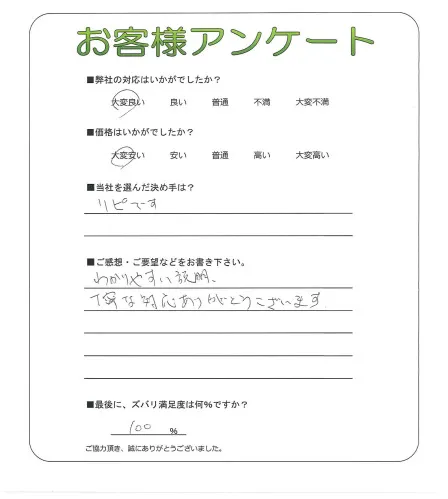 お客様アンケート
■弊社の対応はいかがでしたか?
大変良い 良い 普通 不満 大変不満
■価格はいかがでしたか?
大変安い 安い 普通 高い 大変高い
■当社を選んだ決め手は?
リピです
■ご感想・ご要望などをお書き下さい。
わかりやすい説明、
丁寧な対応ありがとうございます
■最後に、ズバリ満足度は何%ですか?
100 %
ご協力頂き、誠にありがとうございました。